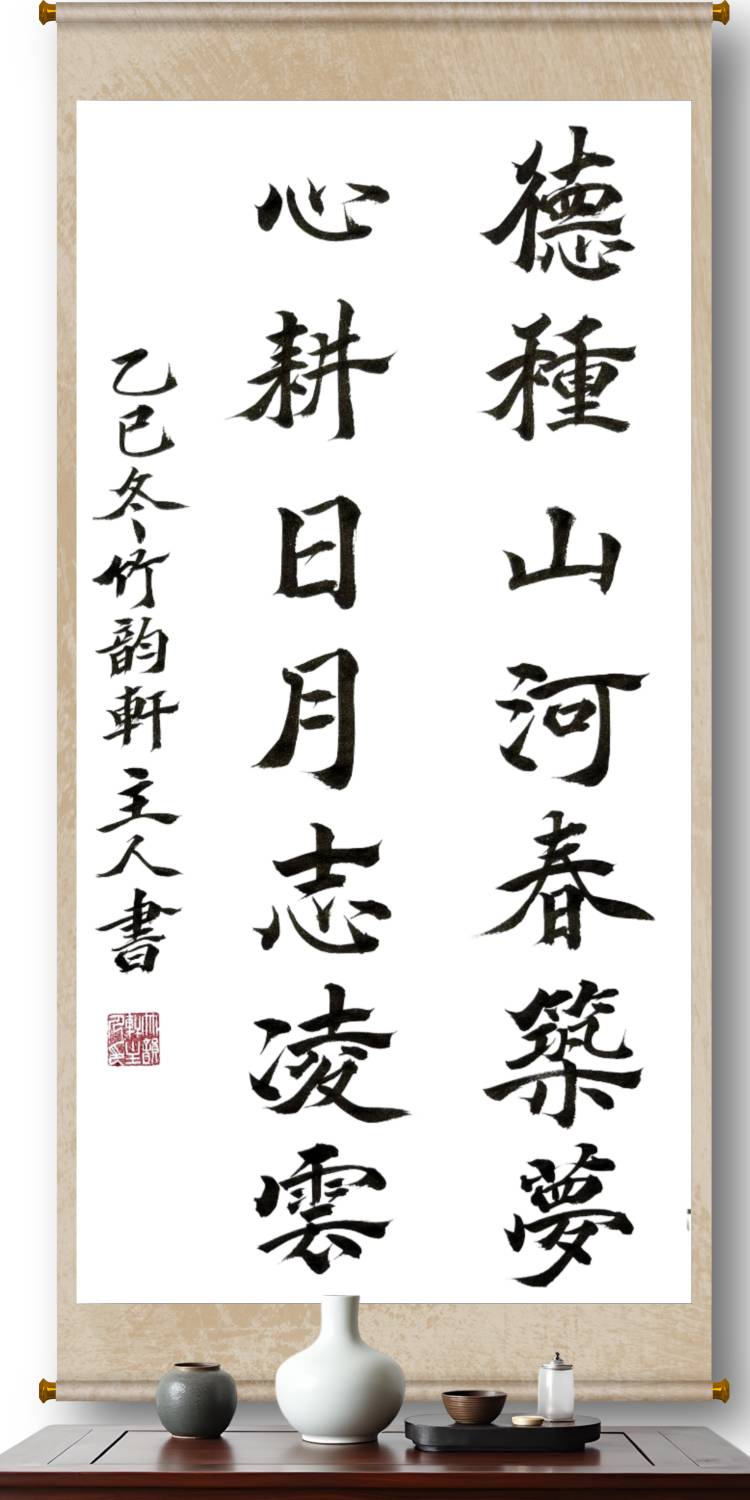 德種山河春築夢
心耕日月志凌雲
乙巳冬竹韵軒主人書